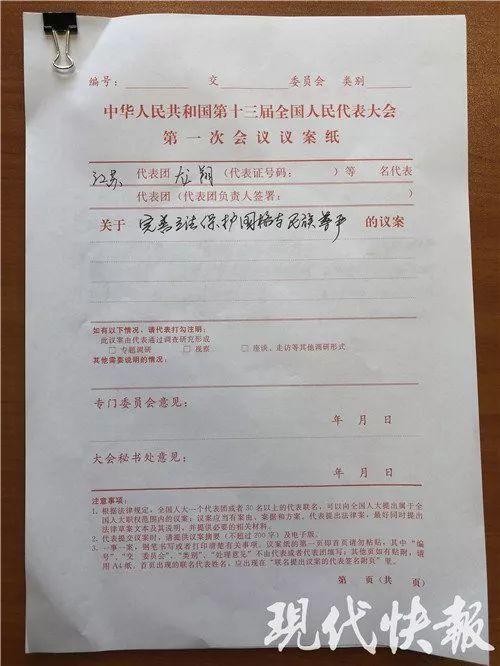 编号: 交 委员会 类别
中华人民共和国第十三届全国人民代表大会
第一次会议议案纸
江苏 代表团 龙翔 (代表证号码: ) 等 名代表
代表团 (代表团负责人签署: )
关于 完善立法保护国格与民族尊严 的议案
如有以下情况，请代表打勾注明：
此议案由代表通过调查研究形成
□ 专题调研 □ 视察 □ 座谈、走访等其他调研形式
其他需要说明的情况：
专门委员会意见：
年 月 日
大会秘书处意见：
年 月 日
注意事项：
1. 根据法律规定，全国人大一个代表团或者 30 名以上的代表联名，可以向全国人大提出属于全
国人大职权范围内的议案；议案应当有案由、案据和方案。代表提出法律案，最好同时提出
法律草案文本及其说明，并提供必要的相关材料。
2. 代表提交议案时，请提供议案摘要（不超过 200 字）及电子版。
3. 一事一案，钢笔书写或者打印清楚有关事项。议案纸的第一页即首页请勿粘贴，其中“编
号”、“交 委员会”、“类别”、“处理意见”不由代表或者代表团填写；其他页如有贴附，请
用 A4 纸。首页出现的联名代表姓名，应出现在“联名提出议案的代表签名附页”里。
第 页(共 页)
现代快報